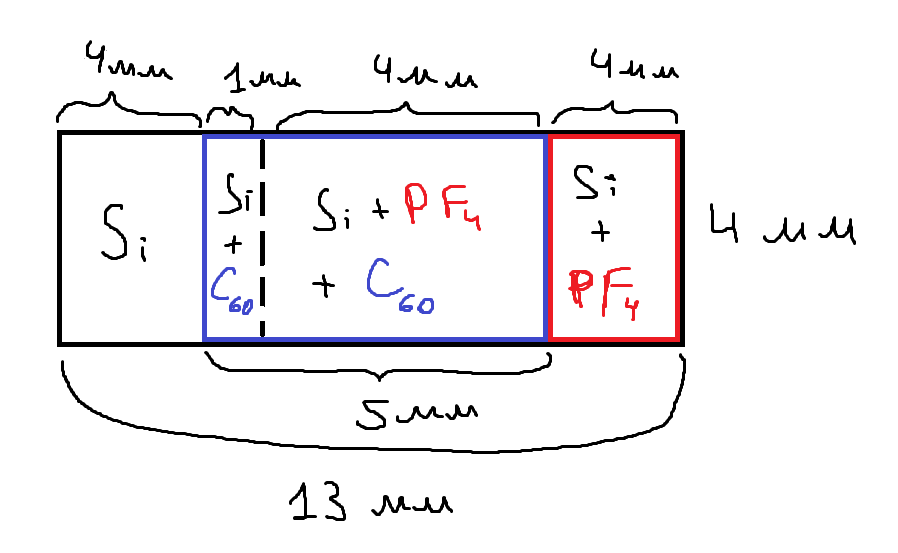 4мм 1мм 4мм 4мм
Si
Si
+
C60
Si + PF4
+ C60
Si
+
PF4
4 мм
5мм
13 мм